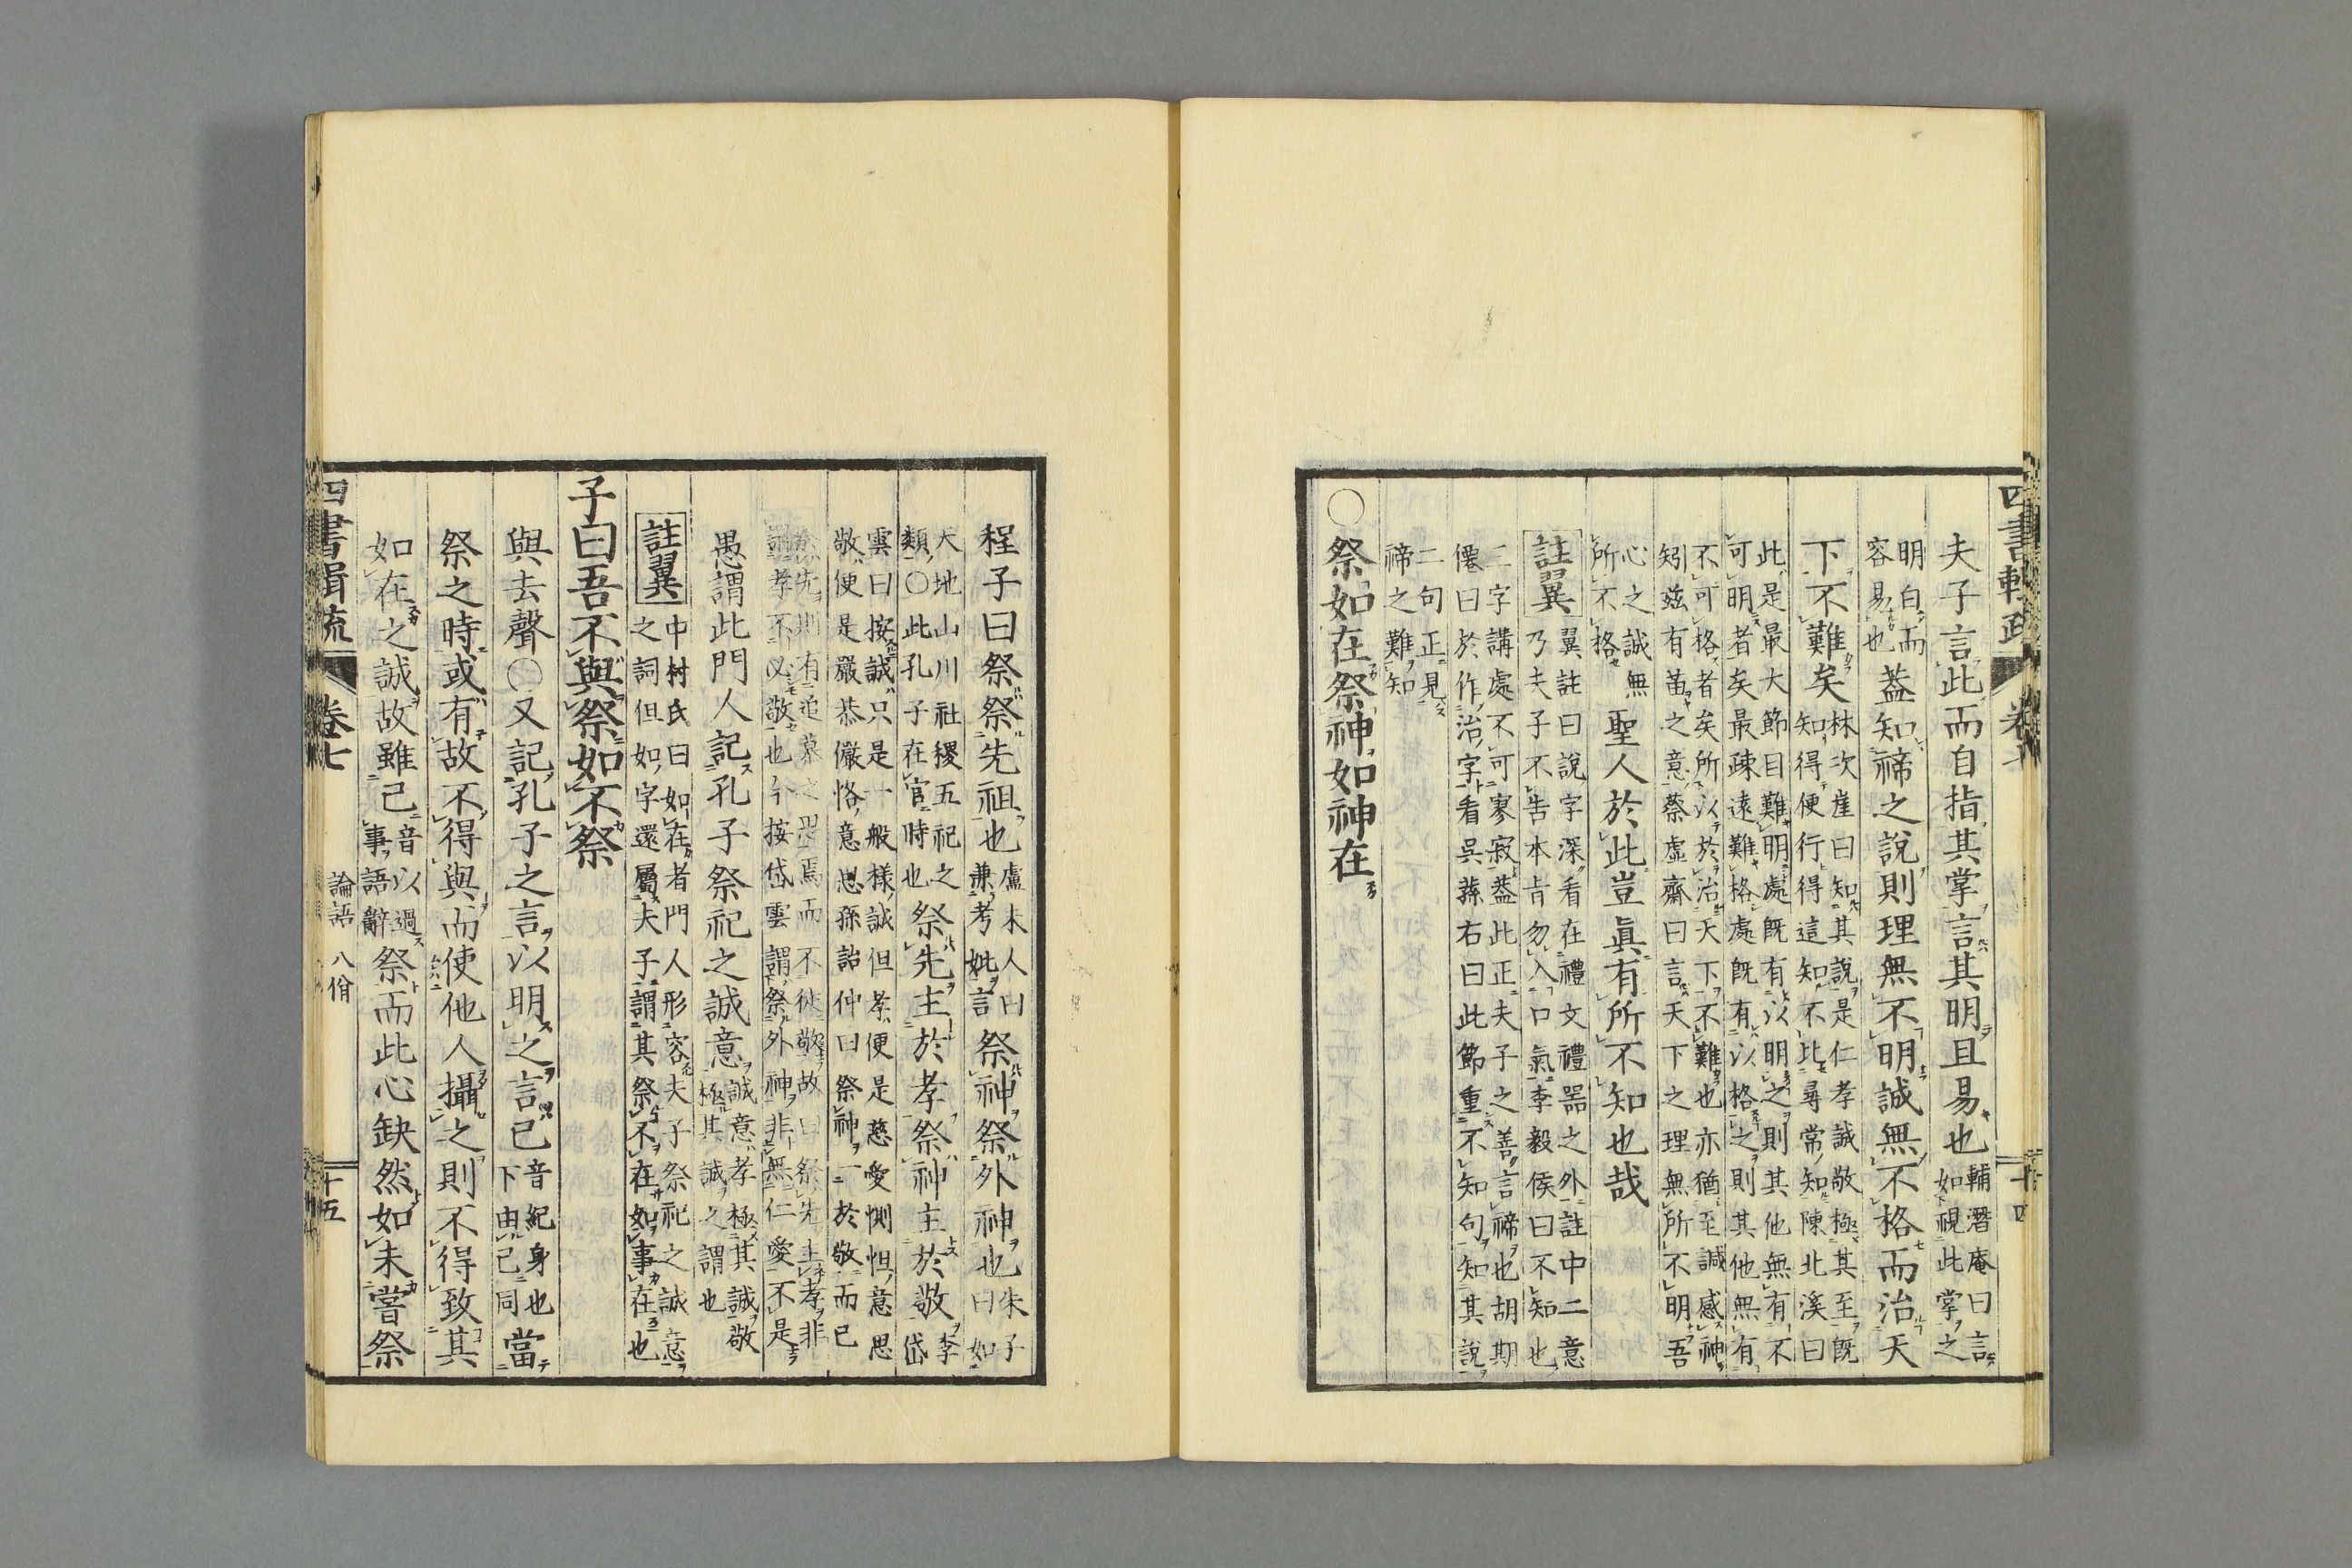 夫子言此而自指其掌言其明且易也輔潛庵曰言如視此掌之
明白而容易也蓋知禘之說則理無不明誠無不格而治天
下不難矣林次崖曰知其說是仁孝誠敬極其至既知得便行得這知不比尋常知陳北溪曰
此是最大節目難明處既有以明之則其他無有不可明者矣最疎遠難格處既有以格之則其他無有
不可格者矣所以於治天下不難也亦猶至誠感神矧茲有苗之意蔡虛齋曰言天下之理無所不明吾
心之誠無所不格聖人於此豈眞有所不知也哉
註翼翼註曰說字深看在禮文禮器之外註中二意乃夫子不告本旨勿入口氣李毅侯曰不知也
二字講處不可寥寂蓋此正夫子之善言禘也胡期僊曰於作治字看吳蓀右曰此節重不知句知其說
二句正見禘之難知
○祭如在祭神如神在
四書輯疏 卷七 十四
程子曰祭祭先祖也盧未人曰兼考妣言祭神祭外神也朱子曰如
天地山川社稷五祀之類○此孔子在官時也祭先主於孝祭神主於敬李岱
雲曰按誠只是一般樣誠但孝便是慈愛惻怛意思敬便是嚴恭儼恪意思孫詒仲曰祭神一於敬而已
祭先則有追慕之思焉而不徒敬故曰祭先主孝非謂孝不必敬也今按岱雲謂祭外神非無仁愛不是
愚謂此門人記孔子祭祀之誠意誠意孝極其誠敬極其誠之謂也
註翼中村氏曰如在者門人形容夫子祭祀之誠意之詞但如字還屬夫子謂其祭不在如事在也
子曰吾不與祭如不祭
與去聲○又記孔子之言以明之言己音紀身也下由己同當
祭之時或有故不得與而使他人攝之則不得致其
如在之誠故雖已音以過事語辭祭而此心缺然如未嘗祭
四書輯疏 卷七 論語 八佾 十五